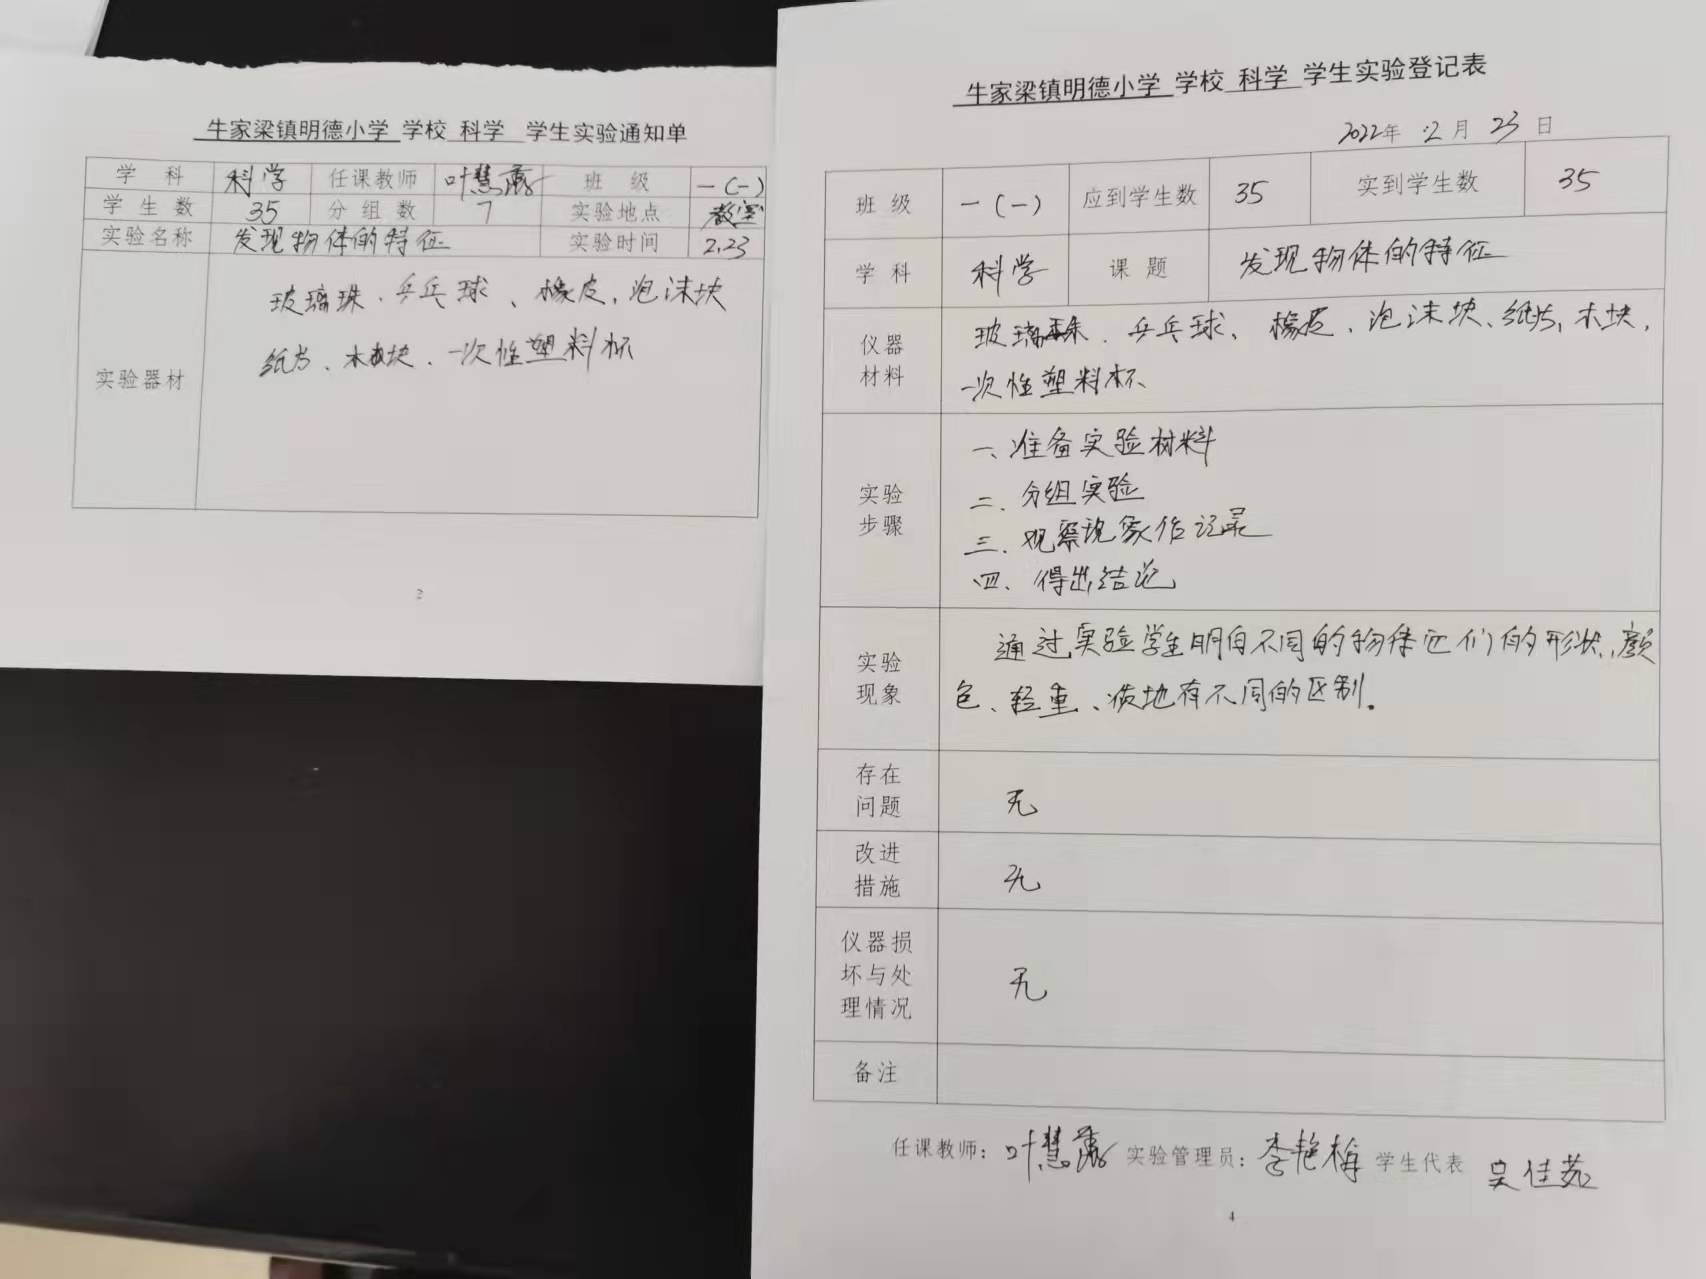 牛家梁镇明德小学 学校 科学 学生实验通知单
学 科 科学 任课教师 叶慧 班 级 一(一)
学 生 数 35 分 组 数 7 实验地点 教室
实验名称 发现物体的特征 实验时间 2.23
玻璃珠、乒乓球、橡皮、泡沫块
纸片、木块、一次性塑料杯
实验器材
2
牛家梁镇明德小学 学校 科学 学生实验登记表
2022年 2月 23日
班 级 一(一) 应到学生数 35 实到学生数 35
学 科 科学 课 题 发现物体的特征
仪器
材料
玻璃珠、乒乓球、橡皮、泡沫块、纸片、木块、
一次性塑料杯
实验
步骤
一、准备实验材料
二、分组实验
三、观察现象作记录
四、得出结论
实验
现象
通过实验学生明白不同的物体它们的形状、颜
色、轻重、质地有不同的区别。
存在
问题
无
改进
措施
无
仪器损
坏与处
理情况
无
备注
任课教师: 叶慧 实验管理员: 李艳梅 学生代表 吴佳茹
4